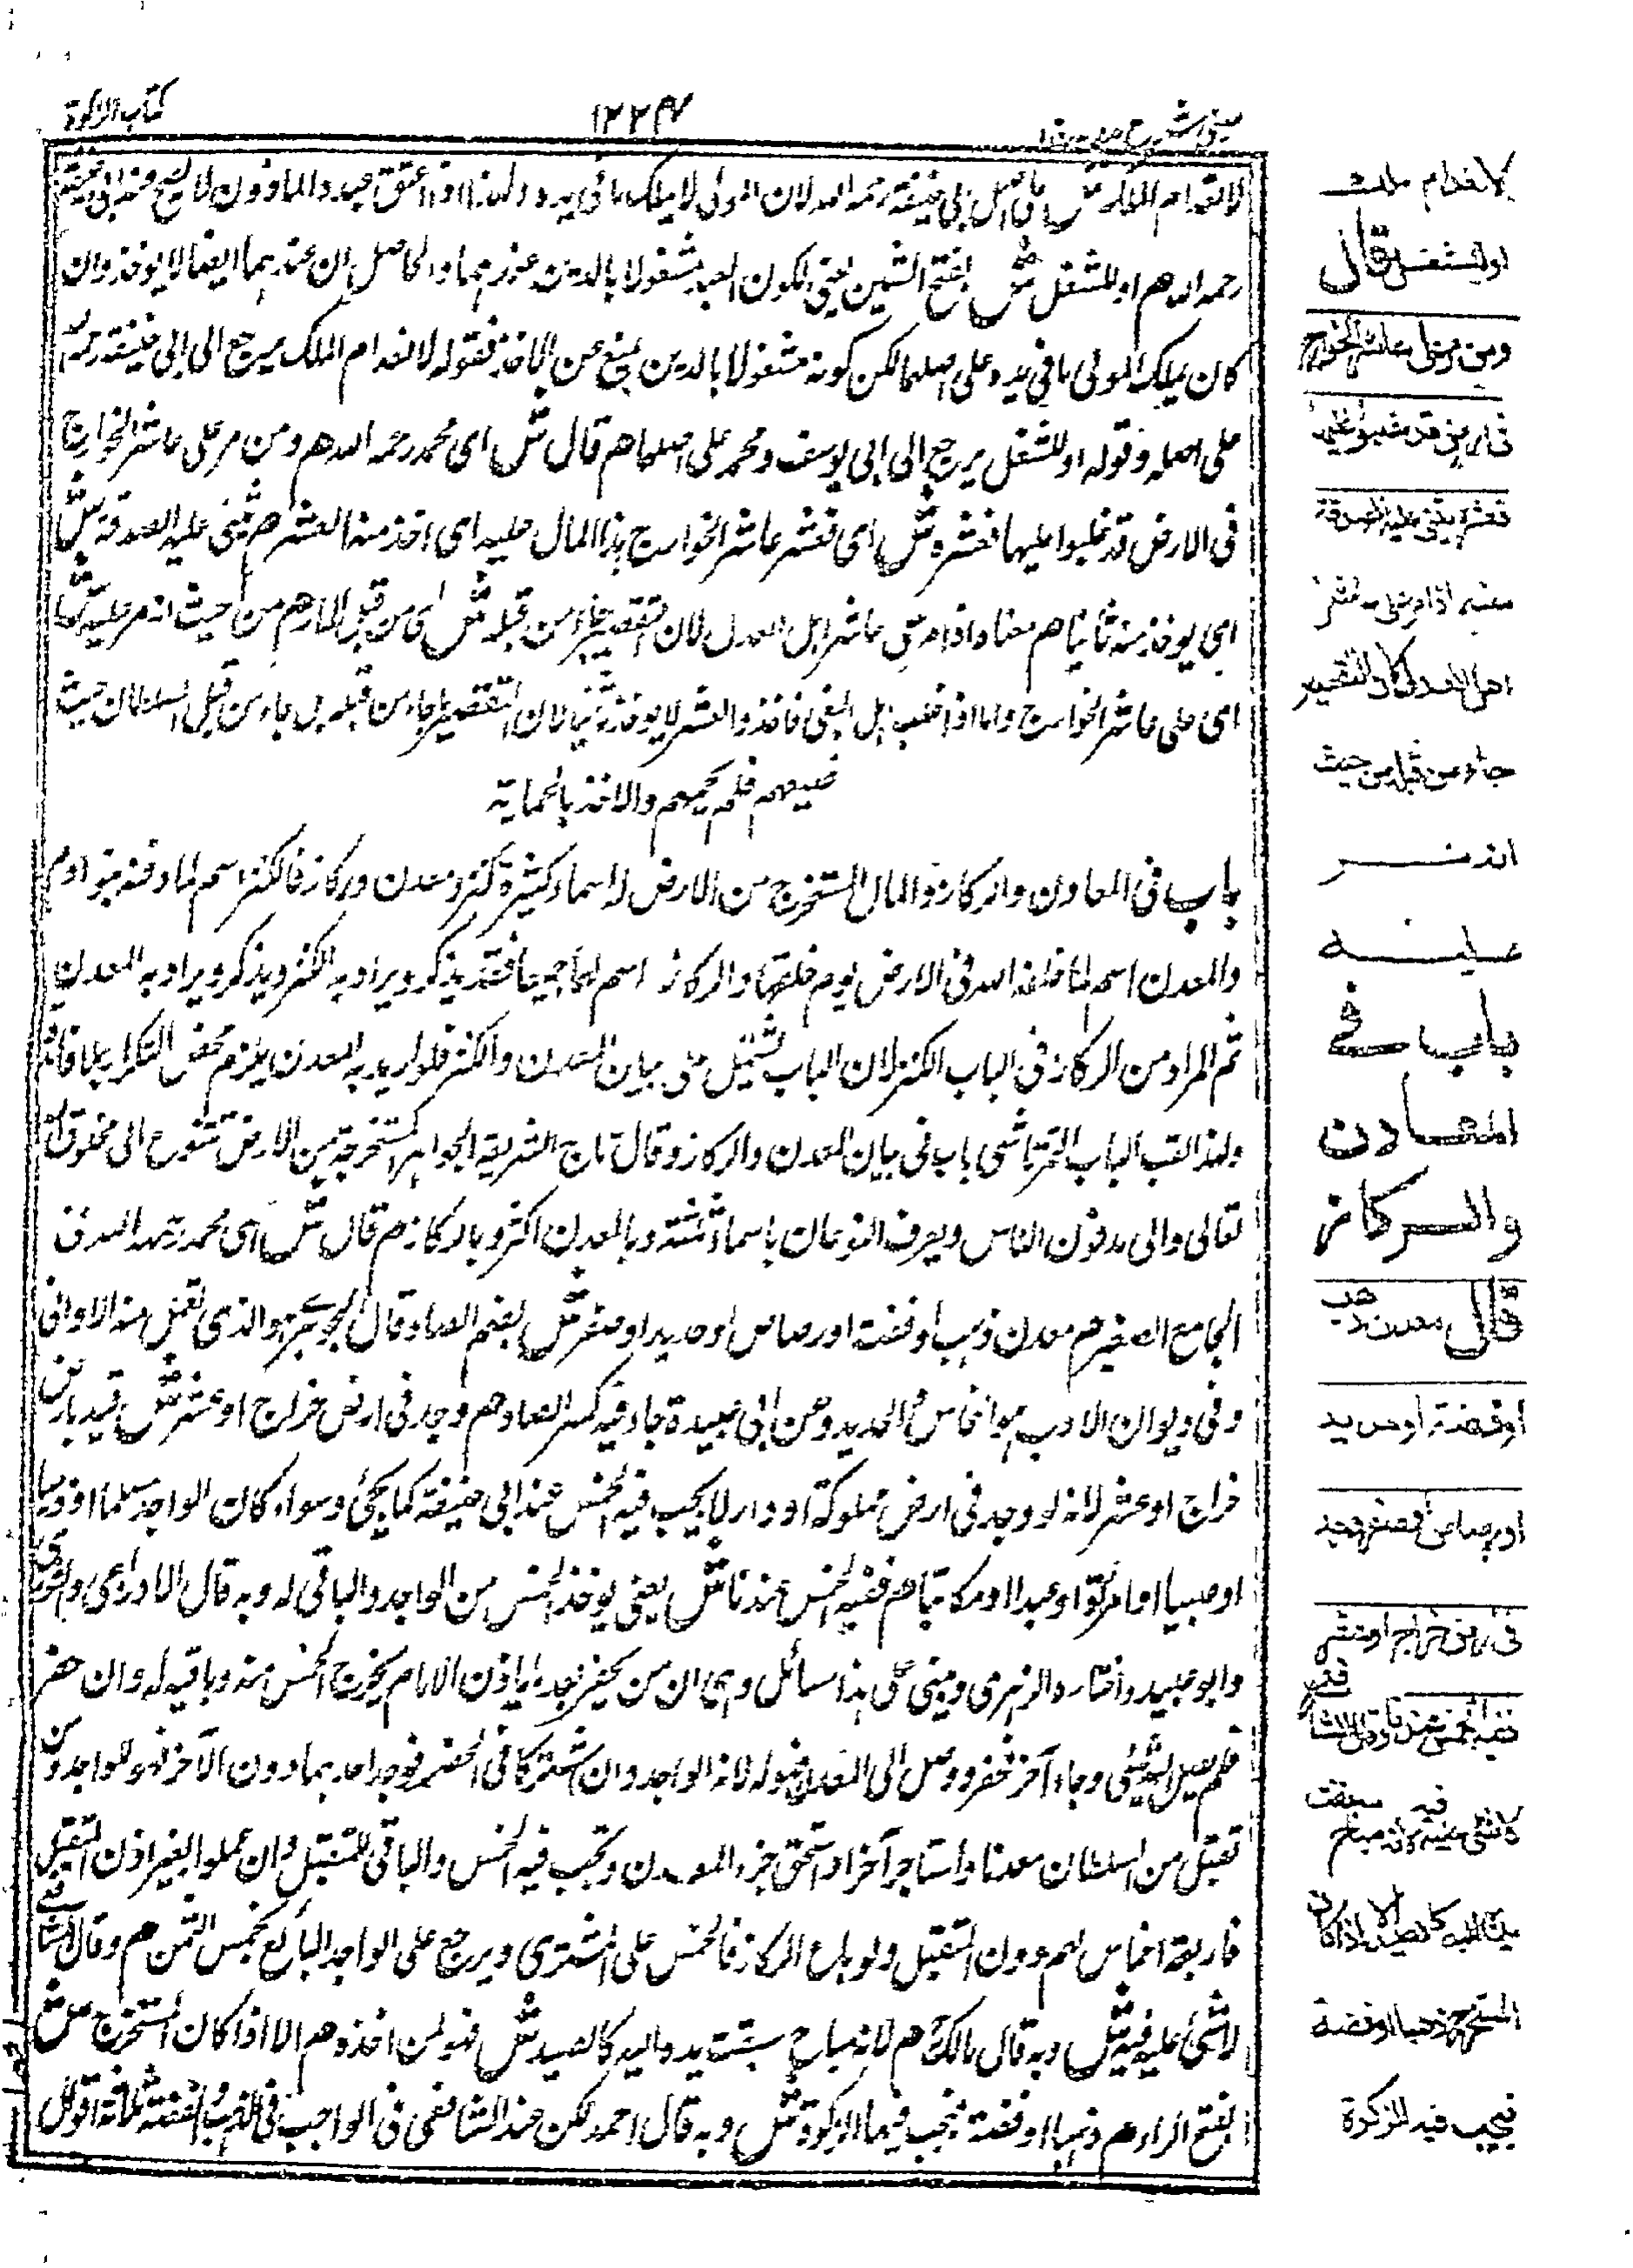 كتاب الزكوة
١٢٢٤
عينى شرح هدايه
لانعدام الملك ش اى على اصل ابى حنيفة رحمه الله لان المولى لا يملك ما فى يده ولهذا اذا اعتق عبده الماذون لا يصح عند ابى حنيفة
رحمه الله م او للشغل ش بفتح الشين يعنى لكون العبد مشغولا بالدين عندهما والحاصل ان عندهما ايضا لا يوخذ وان
كان يملك المولى ما فى يده على اصلهما لكن كونه مشغولا بالدين يمنع عن الاخذ فقوله لانعدام الملك يرجع الى ابى حنيفة رحمه
على اصله وقوله او للشغل يرجع الى ابى يوسف ومحمد على اصلهما م قال ش اى محمد رحمه الله م ومن مر على عاشر الخوارج
فى الارض قد غلبوا عليها فعشره ش اى فعشر عاشر الخوارج هذا المال عليه اى اخذ منه العشر م يثنى عليه الصدقة ش
اى يوخذ منه ثانيا م معناه اذا مر على عاشر اهل العدل لان التقصير جاء من قبله ش اى من قبل المار م من حيث انه مر عليه ش
اى على عاشر الخوارج واما اذا غلب اهل البغى فاخذوا العشر لا يوخذ ثانيا لان التقصير ما جاء من قبله بل جاء من قبل السلطان حيث
ضيعهم فلم يحمهم والاخذ بالحماية
باب فى المعادن والركاز والمال المستخرج من الارض له اسماء كثيرة كنز ومعدن وركاز فالكنز اسم لما دفنه بنو ادم
والمعدن اسم لما خلقه الله فى الارض يوم خلقها والركاز اسم لهما جميعا فقد يذكر ويراد به الكنز ويذكر ويراد به المعدن
ثم المراد من الركاز فى الباب الكنز لان الباب يشتمل على بيان المعدن والكنز فلو اريد به المعدن يلزم محض التكرار بلا فائدة
ولهذا لقب الباب التمرتاشى باب فى بيان المعدن والركاز وقال تاج الشريعة الجواهر المستخرجة من الارض تتنوع الى مخلوق الله
تعالى والى مدفون الناس ويعرف النوعان باسماء ثلثة وبالمعدن اكثر وبالركاز م قال ش اى محمد رحمه الله فى
الجامع الصغير م معدن ذهب او فضة او رصاص او حديد او صفر ش بضم الصاد قال الجوهرى هو الذى تعمل منه الاوانى
وفى ديوان الادب هو النحاس الجديد وعن ابى عبيدة جاء فيه كسر الصاد م وجد فى ارض خراج او عشر ش قيد بارض
خراج او عشر لانه لو وجد فى ارض مملوكة او دار لا يجب فيه الخمس عند ابى حنيفة كما يجئ وسواء كان الواجد مسلما او ذميا
او صبيا او امراة او عبدا او مكاتبا م ففيه الخمس عندنا ش يعنى يوخذ الخمس من الواجد والباقى له وبه قال الاوزاعى والثورى
وابو عبيد واختاره الزهرى ومبنى على هذا مسائل وهى ان من يحفر بعد باذن الامام يخرج الخمس منه وباقيه له وان حفر
فلم يصل لشئى وجاء آخر فحفر ووصل الى المعدن فهو له لانه الواجد وان اشتركا فى الحفر فوجد احدهما دون الآخر فهو للواجد ومن
تقبل من السلطان معدنا واستاجر آخر واستحق جزء المعدن وتجب فيه الخمس والباقى للمتقبل وان عملوا بغير اذن المتقبل
فاربعة اخماس لهم دون المتقبل ولو باع الركاز فالخمس على المشترى ويرجع على الواجد البائع بخمس الثمن م وقال الشافعى
لا شئ عليه فيه ش وبه قال مالك م لانه مباح سبقت يده اليه كالصيد ش فهو لمن اخذه م الا اذا كان المستخرج ش
بفتح الراء م ذهبا او فضة فيجب فيها الزكوة ش وبه قال احمد لكن عند الشافعى فى الواجب فى الذهب والفضة ثلاثة اقوال
لانعدام ملك
او للشغل قال
ومن مر على عاشر الخوارج
فى ارض قد غلبوا عليها
فعشره يثنى عليه الصدقة
معناه اذا مر على عاشر
اهل العدل لان التقصير
جاء من قبله من حيث
انه مر
عليه
باب فى
المعادن
والركاز
قال معدن ذهب
او فضة او حديد
او رصاص او صفر وجد
فى ارض خراج او عشر
ففيه الخمس عندنا وقال الشافعى
لا شئ عليه فيه لانه مباح سبقت
يده اليه كالصيد الا اذا كان
المستخرج ذهبا او فضة
فيجب فيه الزكوة